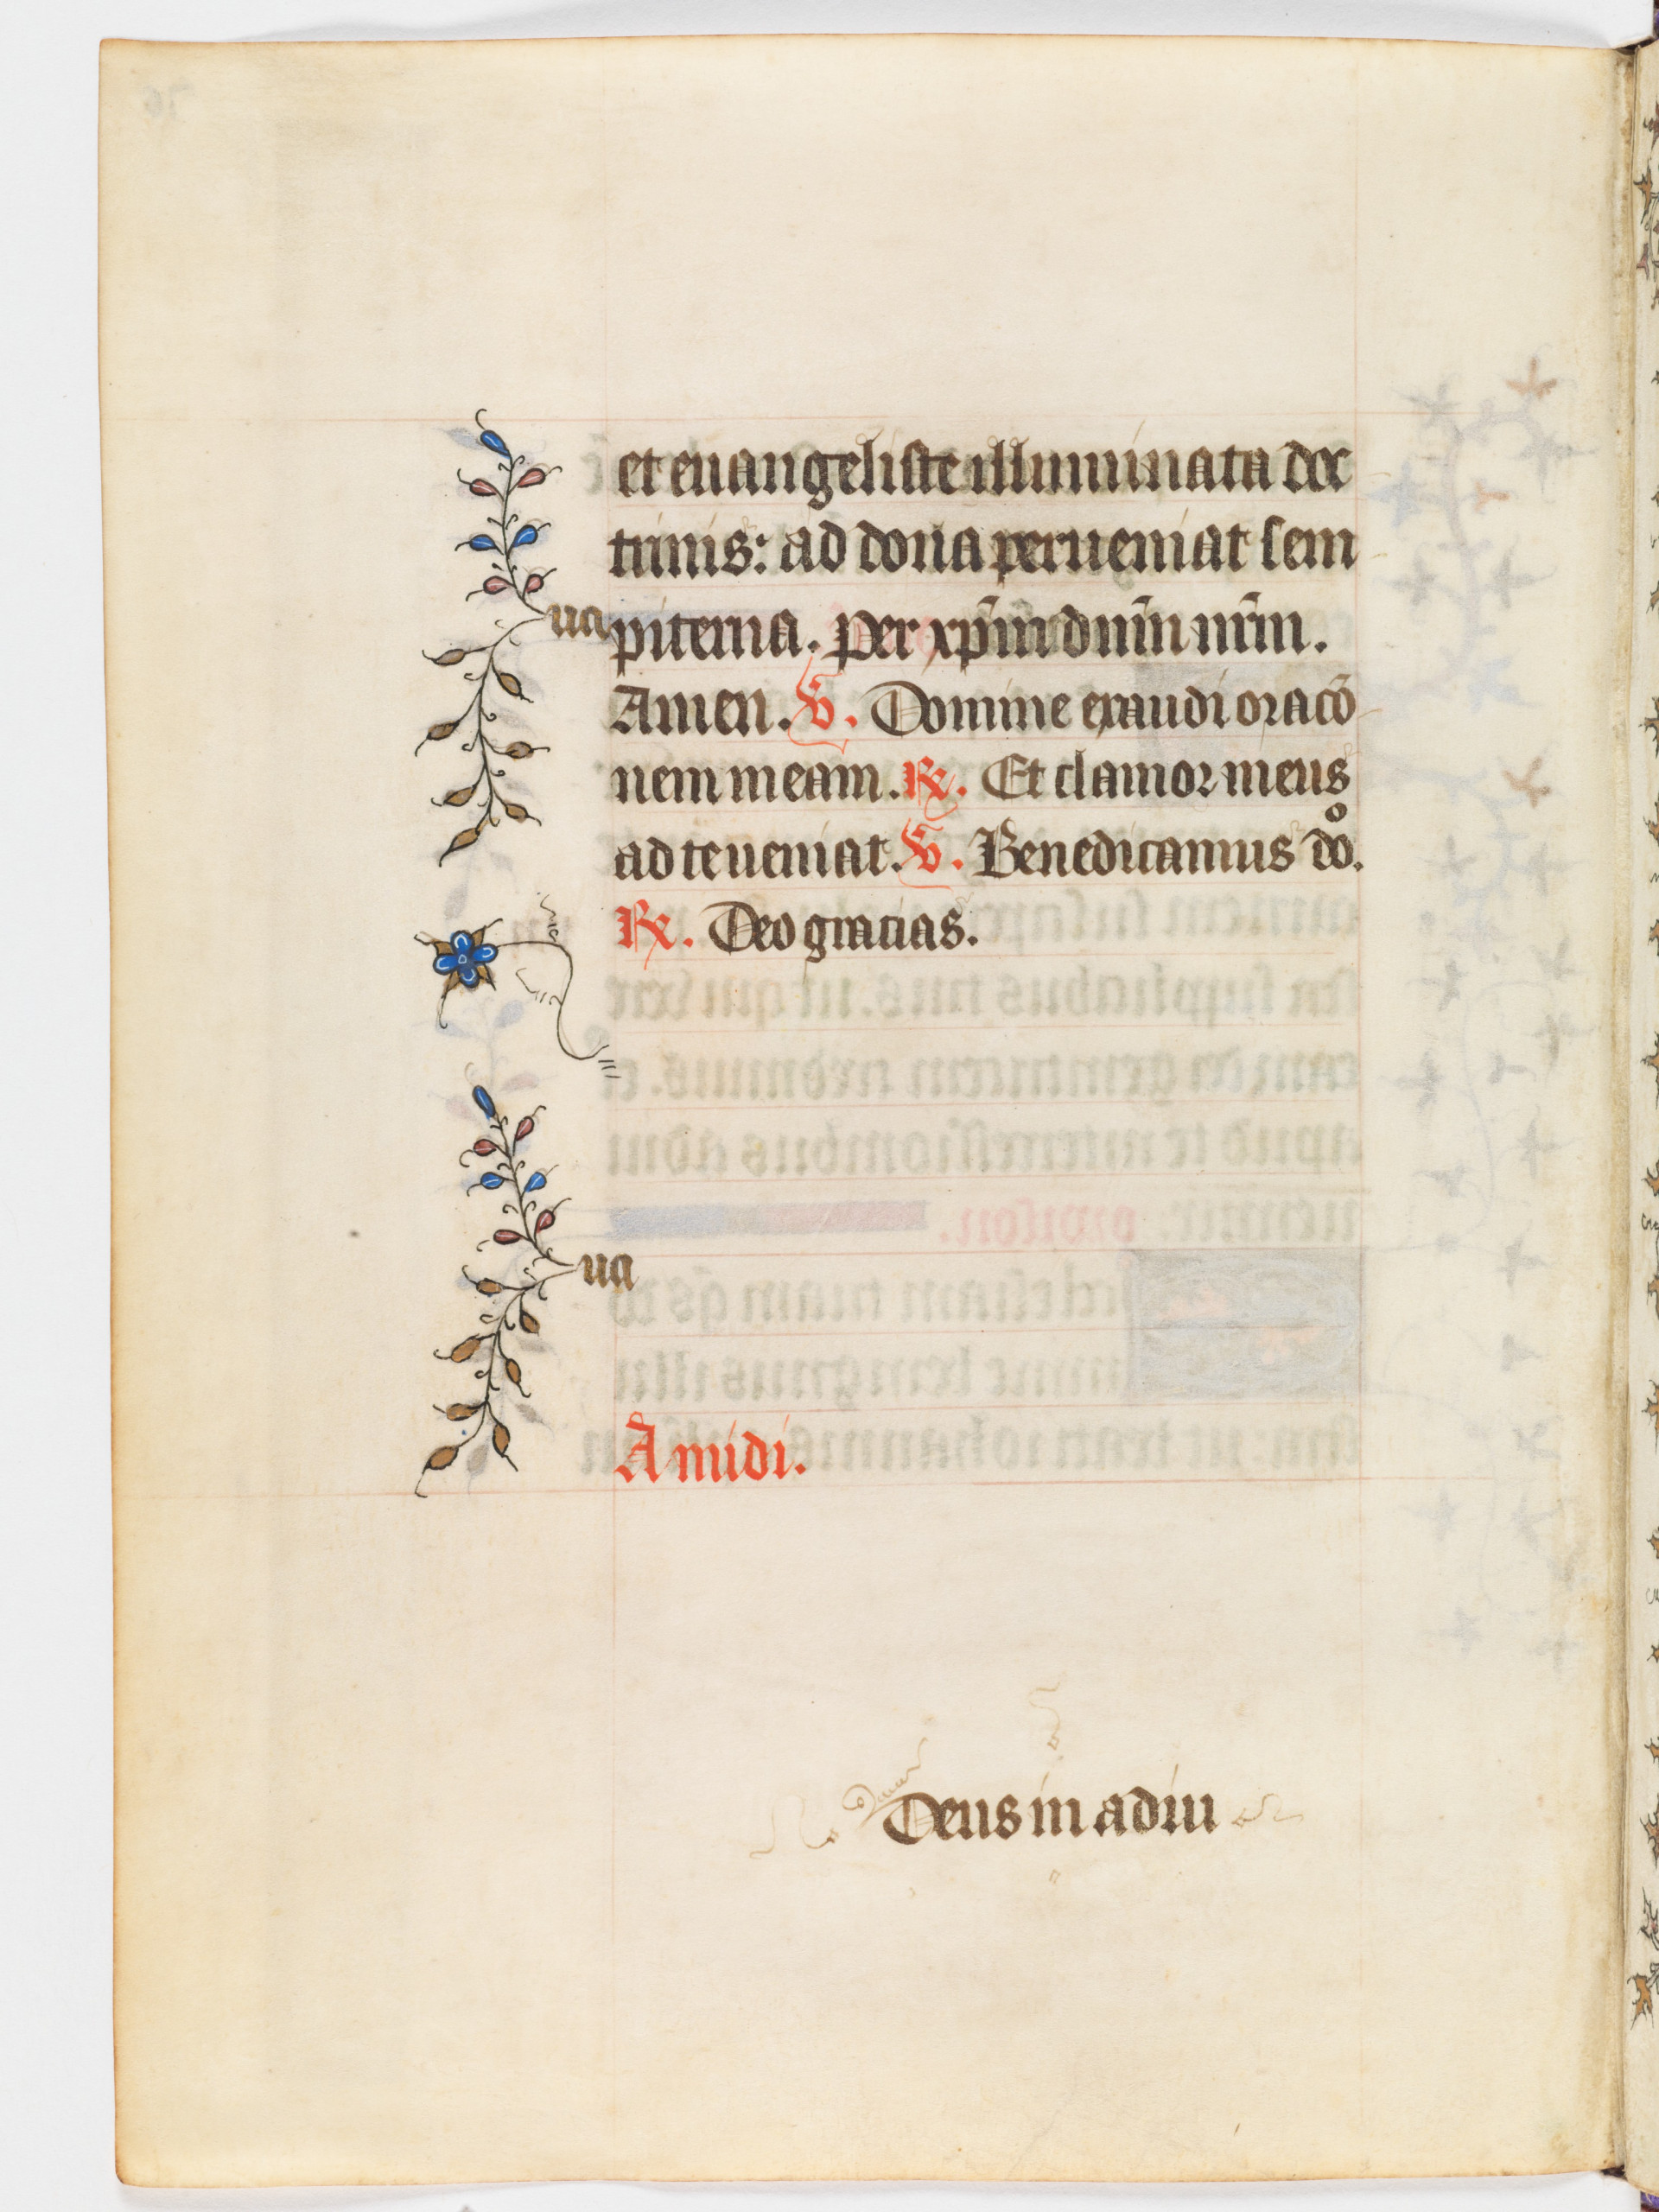 et euangeliste illuminata doc
trinis: ad dona perueniat sem
piterna. per xp̄m dn̄m nr̄m.
Amen. ℣. Domine exaudi oracō
nem meam. ℟. Et clamor meus
ad te ueniat. ℣. Benedicamus dº.
℟. Deo gracias.
A midi.
Deus in adiu